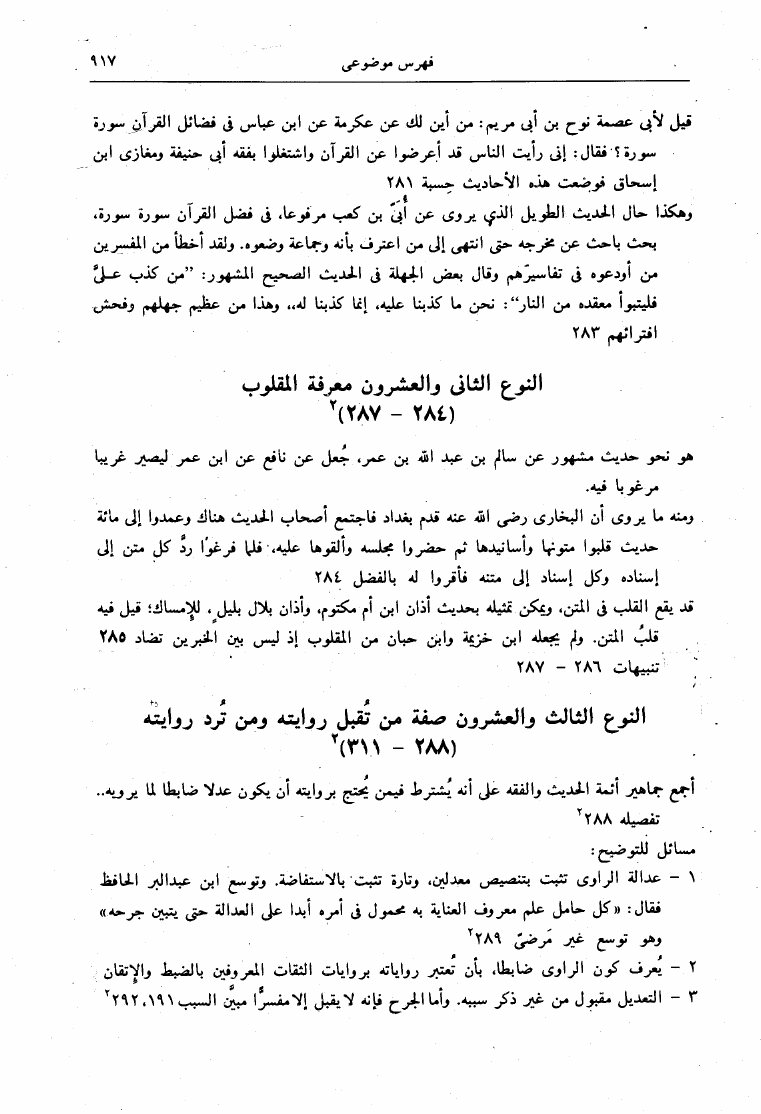 فهرس موضوعى ٩١٧
قيل لأبى عصمة نوح بن أبى مريم: من أين لك عن عكرمة عن ابن عباس فى فضائل القرآن سورة
سورة؟ فقال: إنى رأيت الناس قد أعرضوا عن القرآن واشتغلوا بفقه أبى حنيفة ومغازى ابن
إسحاق فوضعت هذه الأحاديث حِسبة ٢٨١
وهكذا حال الحديث الطويل الذى يروى عن أُبَىّ بن كعب مرفوعا، فى فضل القرآن سورة سورة،
بحث باحث عن مخرجه حتى انتهى إلى من اعترف بأنه وجماعة وضعوه. ولقد أخطأ من المفسرين
من أودعوه فى تفاسيرهم وقال بعض الجهلة فى الحديث الصحيح المشهور: ”من كذب علىَّ
فليتبوأ معقده من النار“: نحن ما كذبنا عليه، إنما كذبنا له،، وهذا من عظيم جهلهم وفحش
افترائهم ٢٨٣
النوع الثانى والعشرون معرفة المقلوب
(٢٨٤ – ٢٨٧)٢
هو نحو حديث مشهور عن سالم بن عبد الله بن عمر، جُعل عن نافع عن ابن عمر ليصير غريبا
مرغوبا فيه.
ومنه ما يروى أن البخارى رضى الله عنه قدم بغداد فاجتمع أصحاب الحديث هناك وعمدوا إلى مائة
حديث قلبوا متونها وأسانيدها ثم حضروا مجلسه وألقوها عليه، فلما فرغوا ردَّ كل متن إلى
إسناده وكل إسناد إلى متنه فأقروا له بالفضل ٢٨٤
قد يقع القلب فى المتن، ويمكن تمثيله بحديث أذان ابن أم مكتوم، وأذان بلال بليل، للإمساك؛ قيل فيه
قلبُ المتن. ولم يجعله ابن خزيمة وابن حبان من المقلوب إذ ليس بين الخبرين تضاد ٢٨٥
تنبيهات ٢٨٦ – ٢٨٧
النوع الثالث والعشرون صفة من تُقبل روايته ومن تُرد روايته
(٢٨٨ – ٣١١)٢
أجمع جماهير أئمة الحديث والفقه على أنه يُشترط فيمن يُحتج بروايته أن يكون عدلا ضابطا لما يرويه..
تفصيله ٢٨٨٢
مسائل للتوضيح:
١ – عدالة الراوى تثبت بتنصيص معدلين، وتارة تثبت بالاستفاضة. وتوسع ابن عبدالبر الحافظ
فقال: «كل حامل علم معروف العناية به محمول فى أمره أبدا على العدالة حتى يتبين جرحه»
وهو توسع غير مَرضىّ ٢٨٩٢
٢ – يُعرف كون الراوى ضابطا، بأن تُعتبر رواياته بروايات الثقات المعروفين بالضبط والإتقان
٣ – التعديل مقبول من غير ذكر سببه. وأما الجرح فإنه لا يقبل إلا مفسرًا مبيَّن السبب ١٩١، ٢٩٢٢